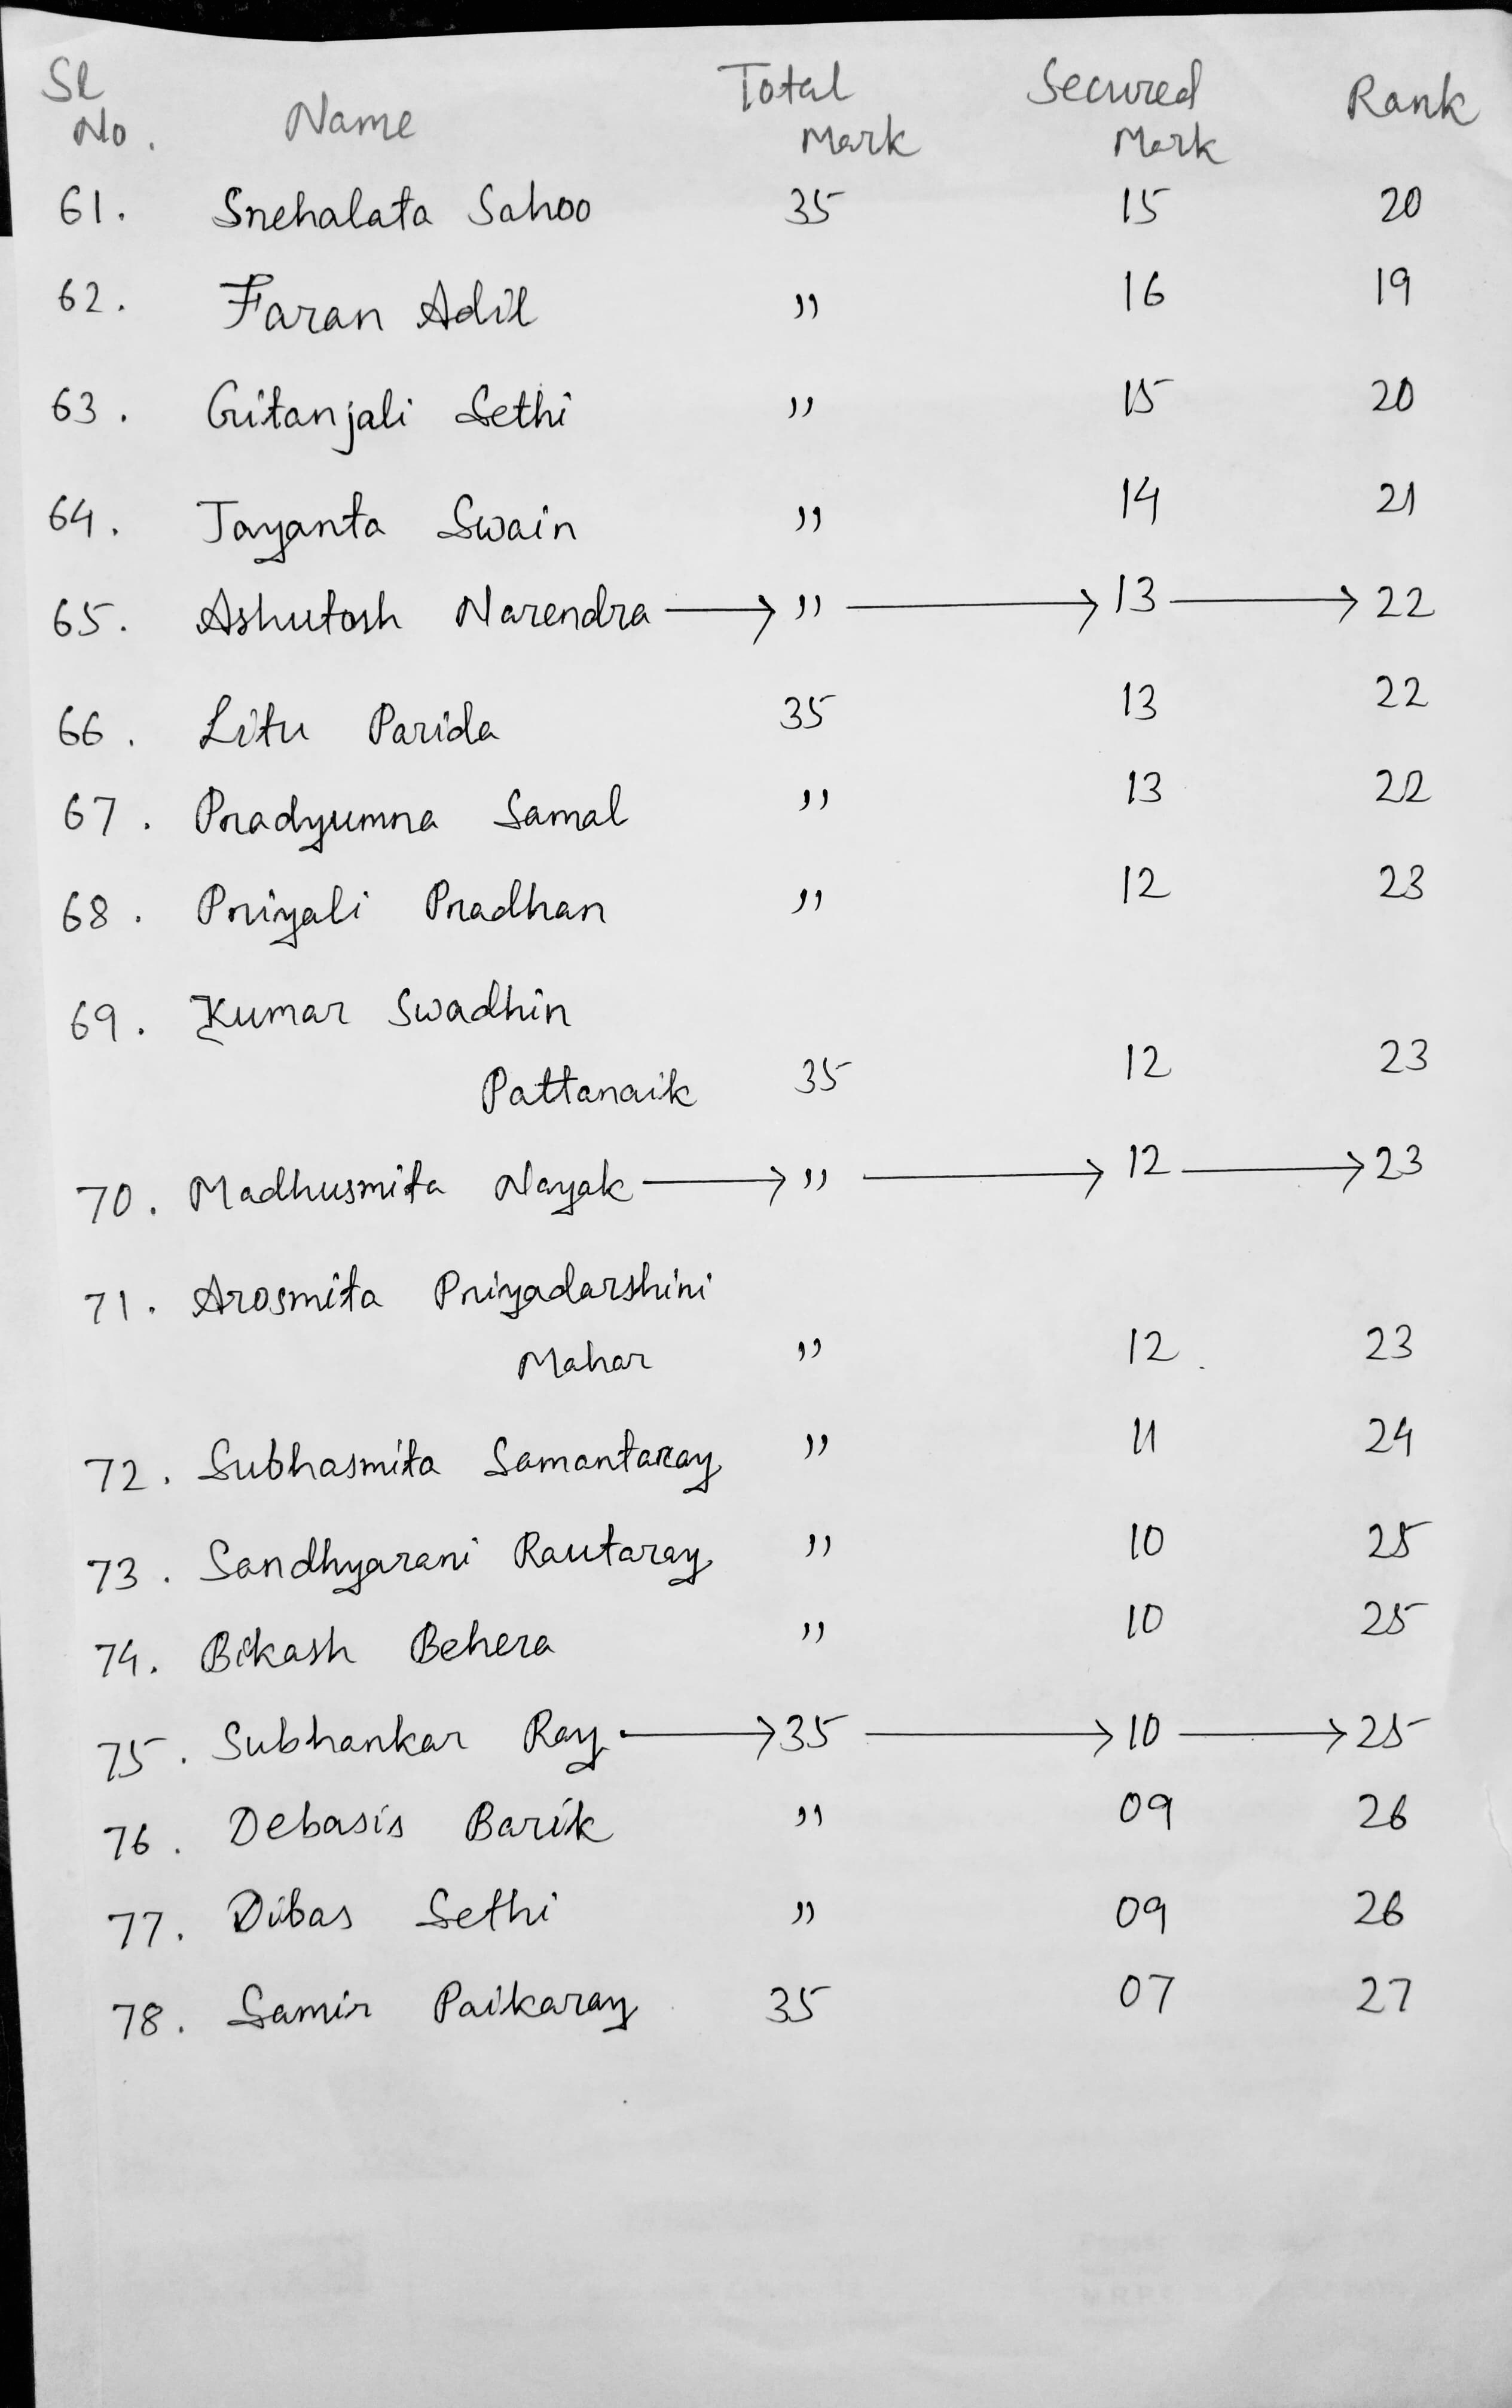 Sl No. Name Total Mark Secured Mark Rank
61. Snehalata Sahoo 35 15 20
62. Faran Adil " 16 19
63. Gitanjali Sethi " 15 20
64. Jayanta Swain " 14 21
65. Ashutosh Narendra → " → 13 → 22
66. Litu Parida 35 13 22
67. Pradyumna Samal " 13 22
68. Priyali Pradhan " 12 23
69. Kumar Swadhin
Pattanaik 35 12 23
70. Madhusmita Nayak → " → 12 → 23
71. Arosmita Priyadarshini
Mahar " 12 23
72. Subhasmita Samantaray " 11 24
73. Sandhyarani Rautaray " 10 25
74. Bikash Behera " 10 25
75. Subhankar Ray → 35 → 10 → 25
76. Debasis Barik " 09 26
77. Dibas Sethi " 09 26
78. Samir Paikaray 35 07 27